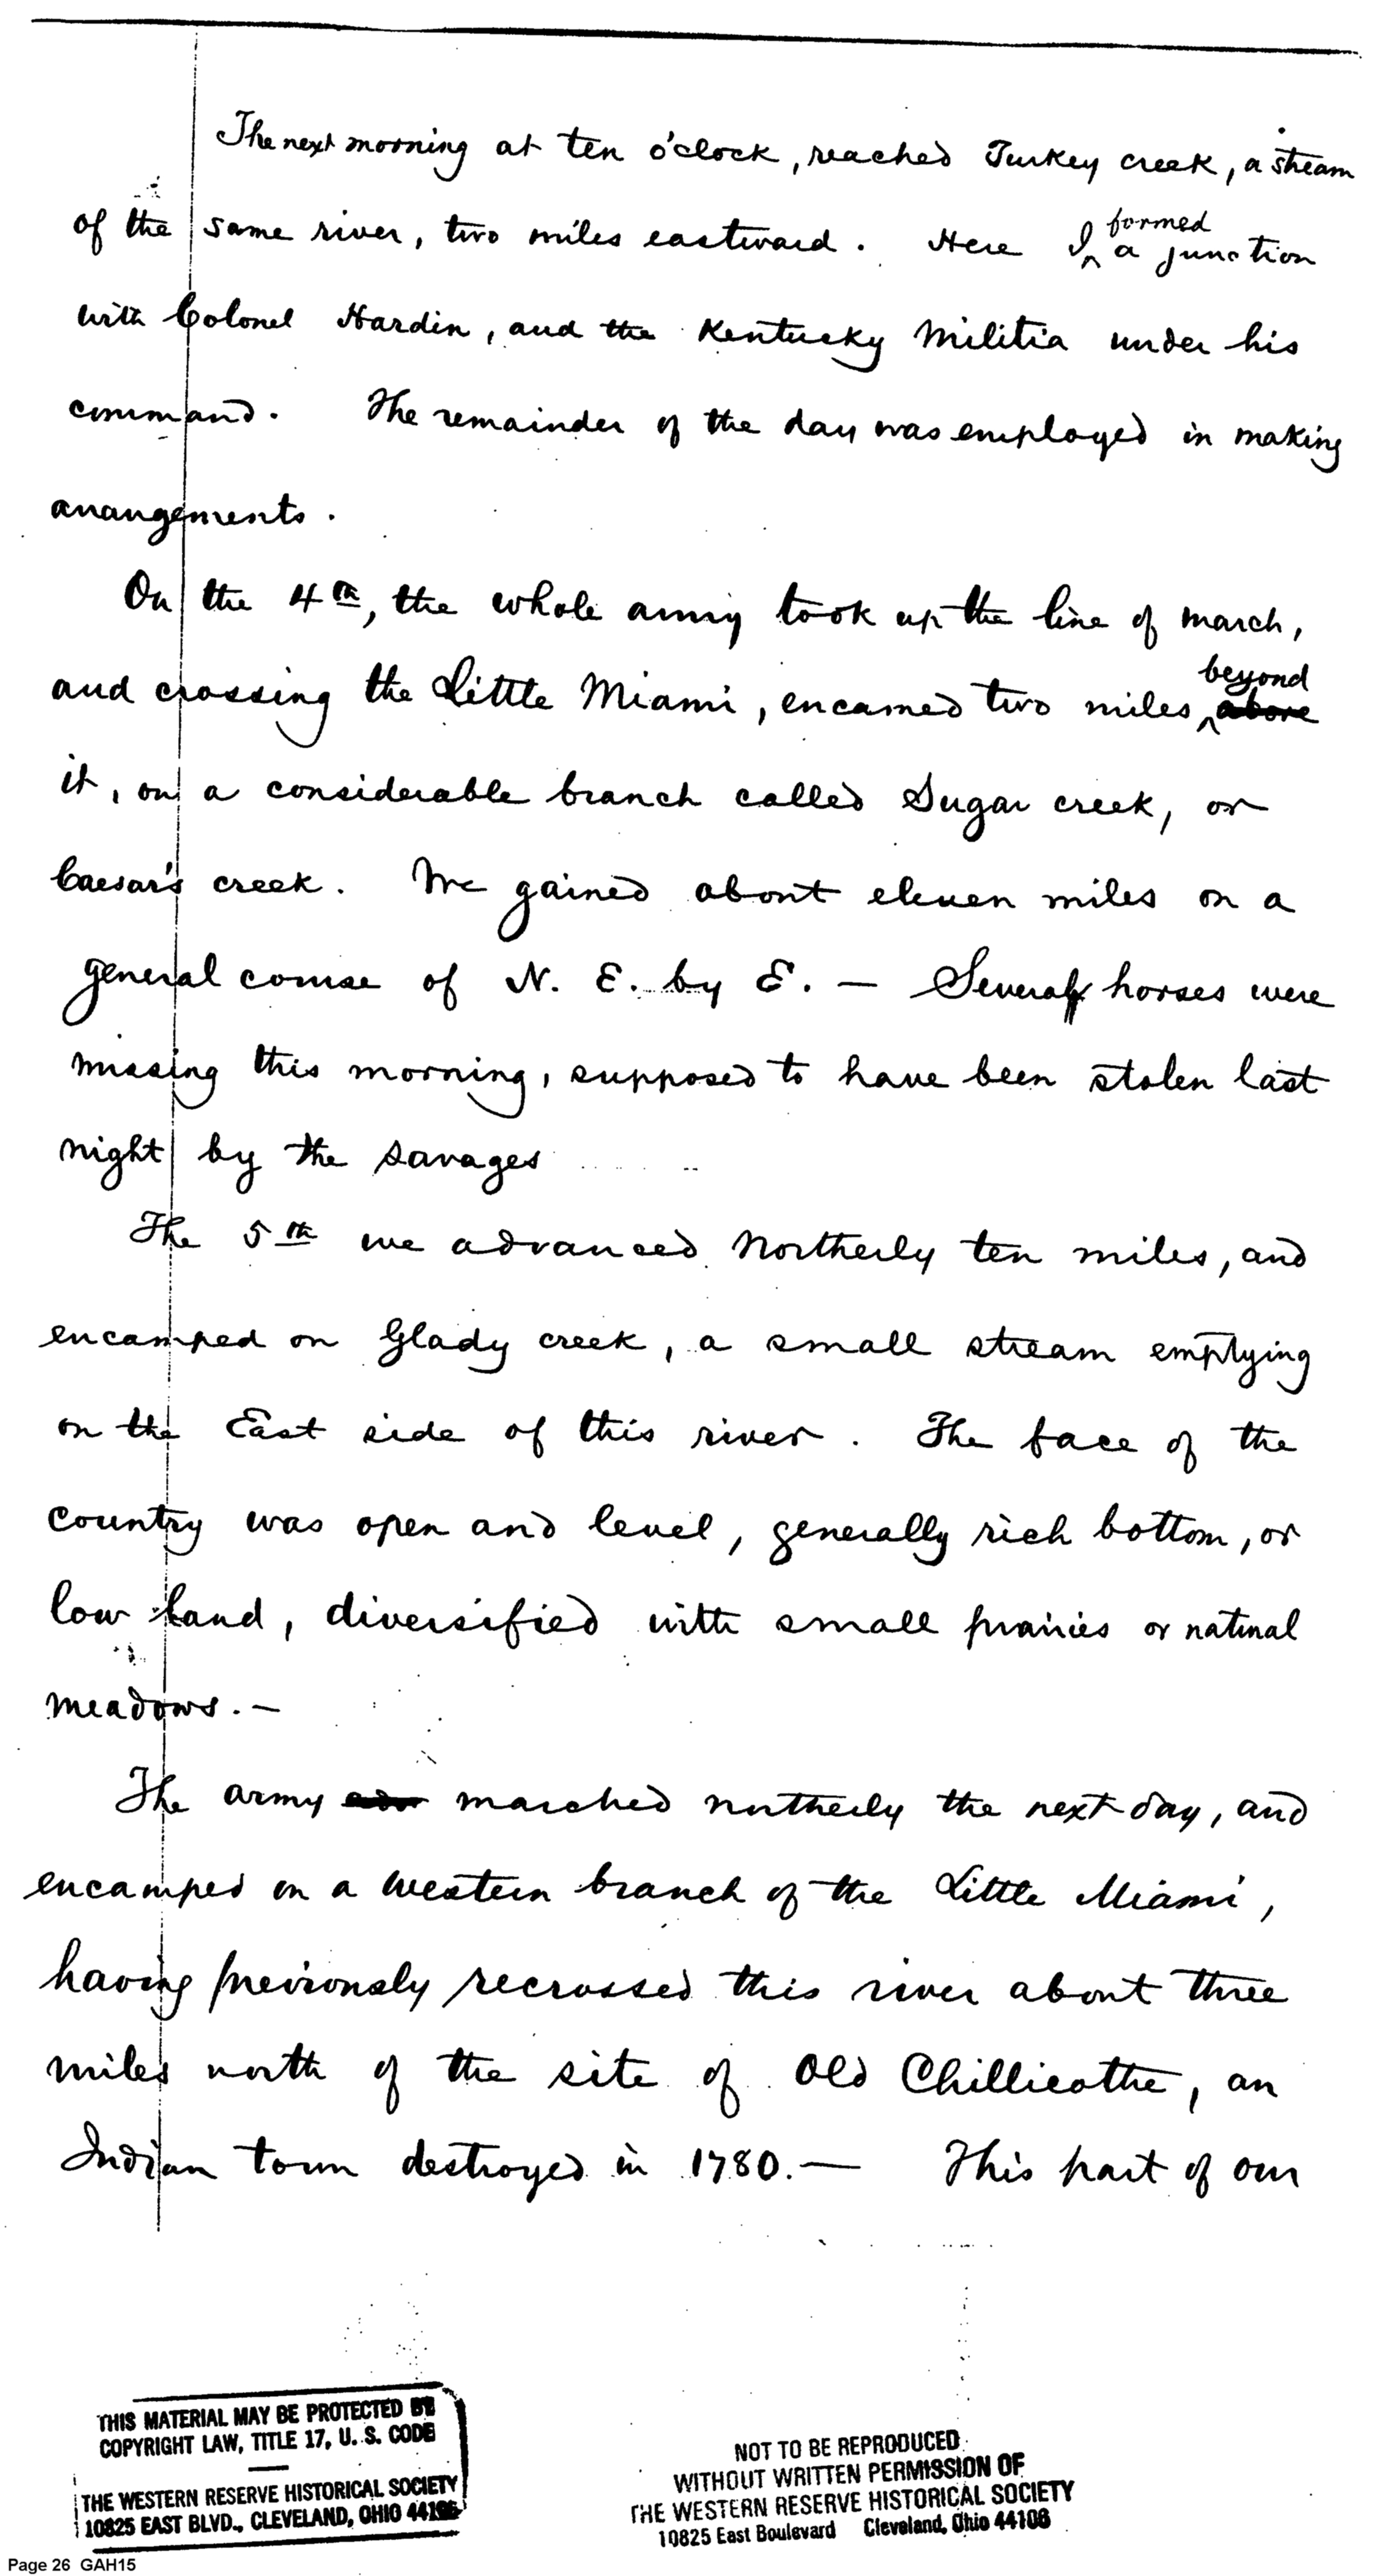 The next morning at ten o'clock, reached Turkey creek, a stream
of the same river, two miles eastward. Here I formed a junction
with Colonel Hardin, and the Kentucky Militia under his
command. The remainder of the day was employed in making
arrangements.
On the 4th, the whole army took up the line of march,
and crossing the Little Miami, encamed two miles beyond above
it, on a considerable branch called Sugar creek, or
Caesar's creek. We gained about eleven miles on a
general course of N. E. by E. — Several horses were
missing this morning, supposed to have been stolen last
night by the savages
The 5th we advanced Northerly ten miles, and
encamped on Glady creek, a small stream emptying
on the East side of this river. The face of the
country was open and level, generally rich bottom, or
low land, diversified with small prairies or natural
meadows. —
The army adv marched northerly the next day, and
encamped on a western branch of the Little Miami,
having previously recrossed this river about three
miles north of the site of Old Chillicothe, an
Indian town destroyed in 1780. — This part of our
THIS MATERIAL MAY BE PROTECTED BY
COPYRIGHT LAW, TITLE 17, U. S. CODE
THE WESTERN RESERVE HISTORICAL SOCIETY
10825 EAST BLVD., CLEVELAND, OHIO 44106
NOT TO BE REPRODUCED
WITHOUT WRITTEN PERMISSION OF
THE WESTERN RESERVE HISTORICAL SOCIETY
10825 East Boulevard Cleveland, Ohio 44106
Page 26 GAH15